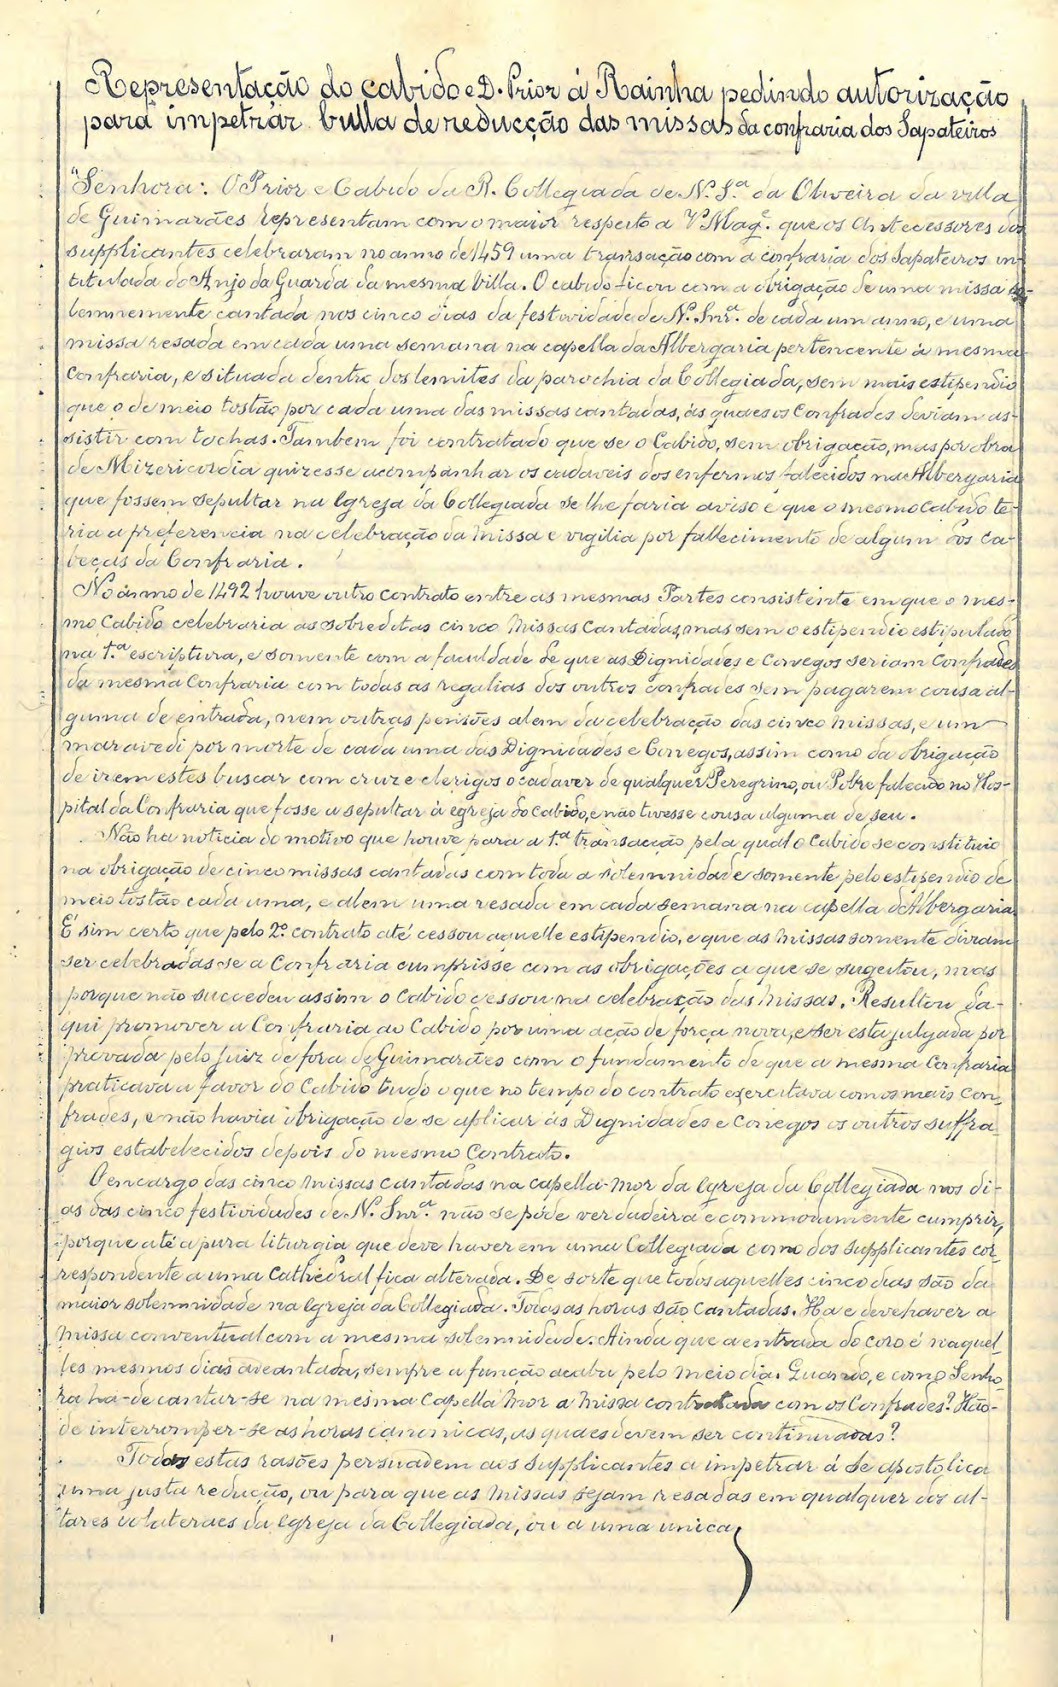 Representação do cabido e D. Prior á Rainha pedindo autorização
para impetrar bulla de reducção das missas da confraria dos Sapateiros
"Senhora: O Prior e Cabido da R. Collegiada de N. S.ª da Oliveira da villa
de Guimarães representam com o maior respeito a V. Mag.e que os Antecessores dos
supplicantes celebraram no anno de 1459 uma transação com a confraria dos Sapateiros in-
titulada do Anjo da Guarda da mesma Villa. O cabido ficou com a obrigação de uma missa so-
lemnemente cantada nos cinco dias da festividade de N. Snr.ª de cada um anno, e uma
missa resada em cada uma semana na capella da Albergaria pertencente á mesma
Confraria, e situada dentro dos lemites da parochia da Collegiada, sem mais estipendio
que o de meio tostão por cada uma das missas cantadas, ás quaes os Confrades deviam as-
sistir com tochas. Tambem foi contratado que se o Cabido, sem obrigação, mas por obra
de Mizericordia quizesse acompanhar os cadaveis dos enfermos falecidos na Albergaria
que fossem sepultar na Igreja da Collegiada se lhe faria aviso e que o mesmo Cabido te-
ria a preferencia na celebração da Missa e vigilia por fallecimento de algum dos ca-
beças da Confraria.
No anno de 1492 houve outro contrato entre as mesmas Partes consistente em que o mes-
mo Cabido celebraria as sobreditas cinco Missas Cantadas, mas sem o estipendio estipulado
na 1.ª escriptura, e somente com a faculdade de que as Dignidades e Conegos seriam Confrades
da mesma Confraria com todas as regalias dos outros confrades sem pagarem cousa al-
guma de entrada, nem outras pensões alem da celebração das cinco missas, e um
maravedi por morte de cada uma das Dignidades e Conegos, assim como da obrigação
de irem estes buscar com cruz e clerigos o cadaver de qualquer Peregrino, ou Pobre falecido no Hos-
pital da Confraria que fosse a sepultar á egreja do Cabido, e não tivesse cousa alguma de seu.
Não ha noticia do motivo que houve para a 1.ª transacção pela qual o Cabido se constituio
na obrigação de cinco missas cantadas com toda a solemnidade somente pelo estipendio de
meio tostão cada uma, e alem uma resada em cada semana na capella d'Albergaria.
É sim certo que pelo 2.º contrato até cessou aquelle estipendio, e que as Missas somente diviam
ser celebradas se a Confraria cumprisse com as obrigações a que se sugeitou, mas
porque não succedeu assim o Cabido cessou na celebração das Missas. Resultou da-
qui promover a Confraria ao Cabido por uma ação de força nova, e ser esta julgada por
provada pelo Juiz de fora de Guimarães com o fundamento de que a mesma Confraria
praticava a favor do Cabido tudo o que no tempo do contrato exercitava com os mais con-
frades, e não havia obrigação de se aplicar ás Dignidades e Conegos os outros suffra-
gios estabelecidos depois do mesmo Contrato.
O encargo das cinco Missas cantadas na capella-mor da Igreja da Collegiada nos di-
as das cinco festividades de N. Snr.ª não se póde verdadeira e commodamente cumprir,
porque até a pura liturgia que deve haver em uma Collegiada como dos supplicantes cor-
respondente a uma Cathedral fica alterada. De sorte que todos aquelles cinco dias são da
maior solemnidade na Igreja da Collegiada. Todas as horas são Cantadas. Ha e deve haver a
Missa conventual com a mesma solemnidade. Ainda que a entrada do coro é naquel-
les mesmos dias aveantada, sempre a função acaba pelo meio dia. Quando, e como Senho-
ra ha-de cantar-se na mesma Capella Mor a Missa contratada com os Confrades? Hão-
de interromper-se as hóras canonicas, as quaes devem ser continuadas?
Todas estas rasões persuadem aos Supplicantes a impetrar á Se apostolica
uma justa redução, ou para que as Missas sejam resadas em qualquer dos al-
tares colateraes da Igreja da Collegiada, ou a uma unica,